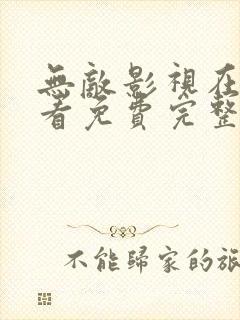 無敵影視在
看免費完整
不能歸家的旅